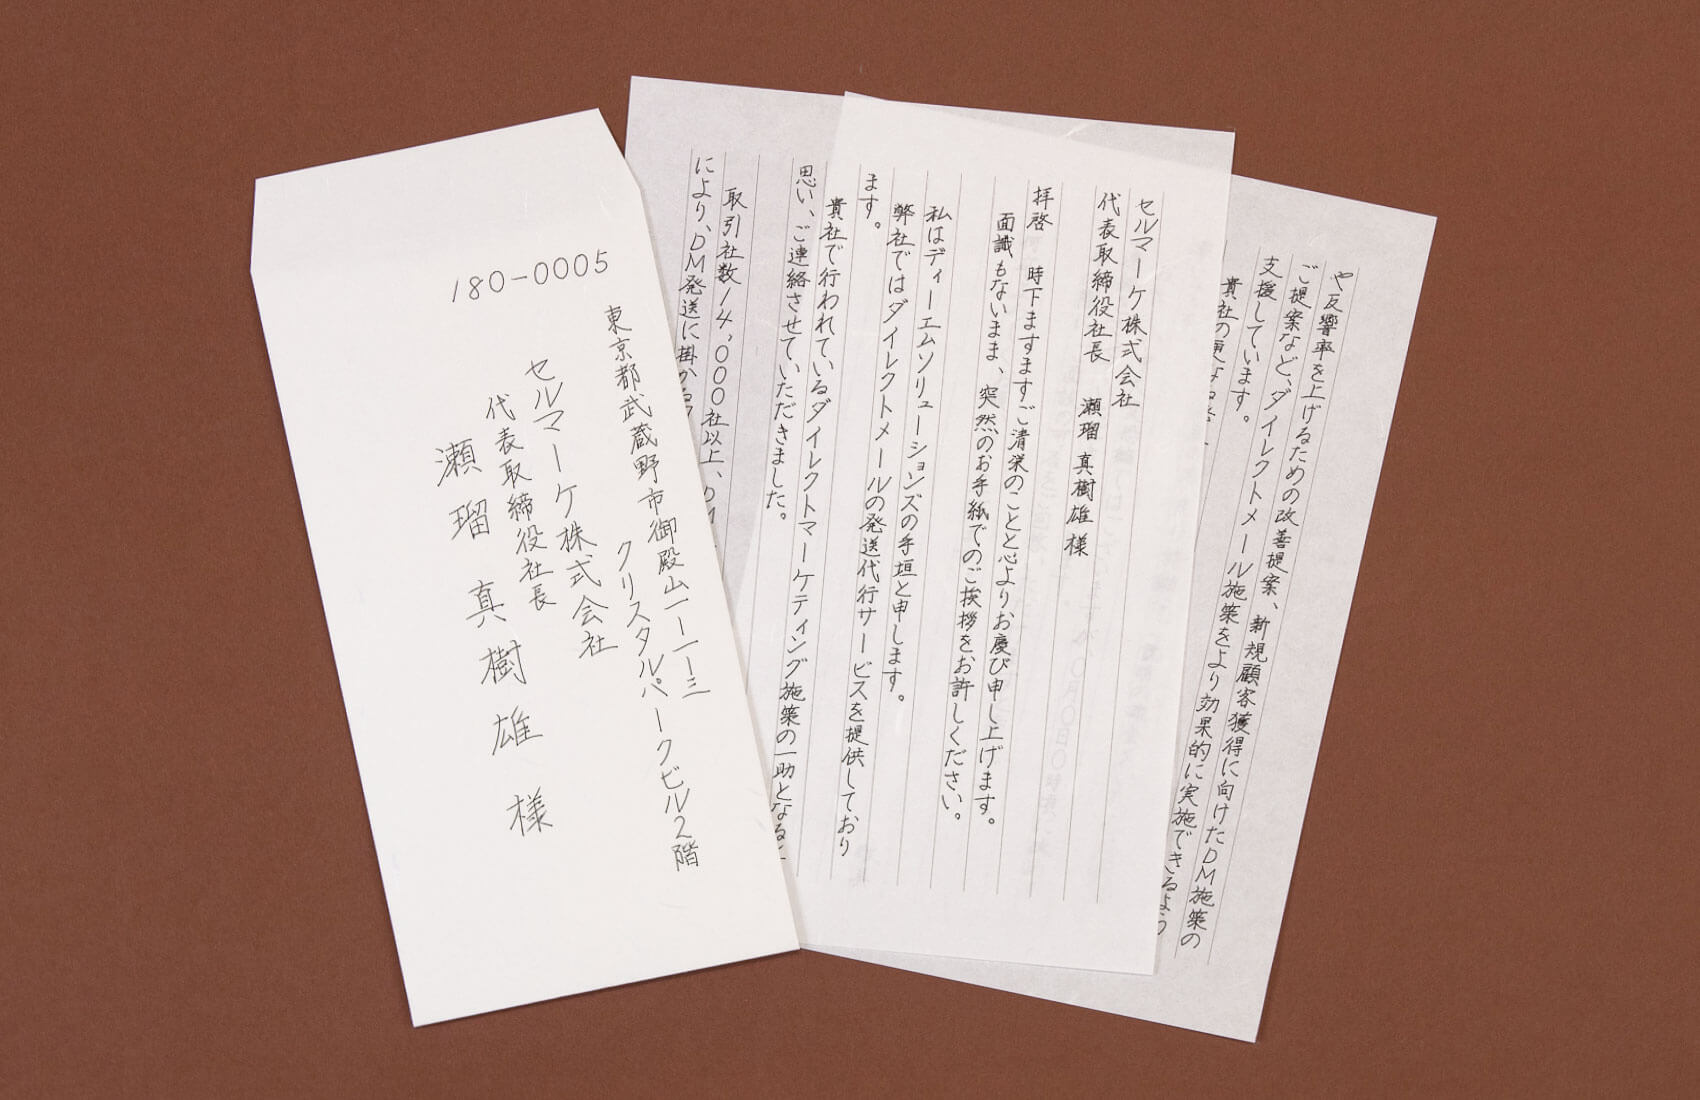 180-0005
東京都武蔵野市御殿山一ー一ー三
クリスタルパークビル2階
セルマーケ株式会社
代表取締役社長
瀬瑠真樹雄様
セルマーケ株式会社
代表取締役社長 瀬瑠真樹雄様
拝啓 時下ますますご清栄のことと心よりお慶び申し上げます。
面識もないまま、突然のお手紙でのご挨拶をお許しください。
私はディーエムソリューションズの手垣と申します。
弊社ではダイレクトメールの発送代行サービスを提供しており
ます。
貴社で行われているダイレクトマーケティング施策の一助となる
思い、ご連絡させていただきました。
取引社数14,000社以上、
により、DM発送に掛かる
や反響率を上げるための改善提案、新規顧客獲得に向けたDM施策の
ご提案など、ダイレクトメール施策をより効果的に実施できるよう
支援しています。
貴社の更なる